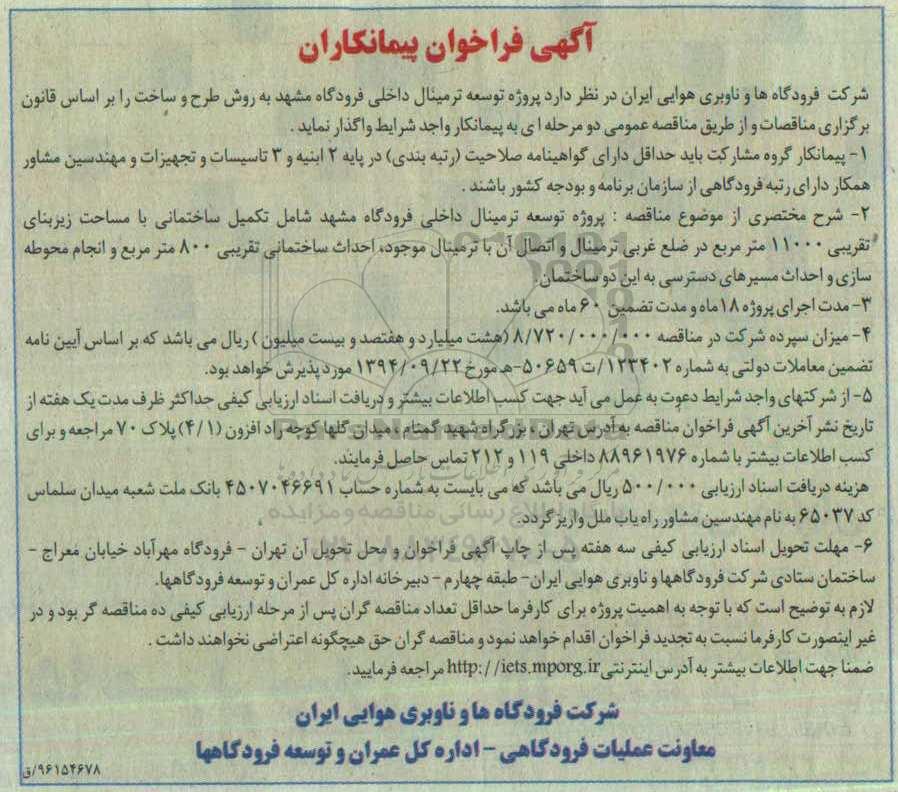 آگهی فراخوان پیمانکاران
شرکت فرودگاه ها و ناوبری هوایی ایران در نظر دارد پروژه توسعه ترمینال داخلی فرودگاه مشهد به روش طرح و ساخت را بر اساس قانون
برگزاری مناقصات و از طریق مناقصه عمومی دو مرحله ای به پیمانکار واجد شرایط واگذار نماید .
۱- پیمانکار گروه مشارکت باید حداقل دارای گواهینامه صلاحیت (رتبه بندی) در پایه ۲ ابنیه و ۳ تاسیسات و تجهیزات و مهندسین مشاور
همکار دارای رتبه فرودگاهی از سازمان برنامه و بودجه کشور باشند .
۲- شرح مختصری از موضوع مناقصه : پروژه توسعه ترمینال داخلی فرودگاه مشهد شامل تکمیل ساختمانی با مساحت زیربنای
تقریبی ۱۱۰۰۰ متر مربع در ضلع غربی ترمینال و اتصال آن با ترمینال موجود، احداث ساختمانی تقریبی ۸۰۰ متر مربع و انجام محوطه
سازی و احداث مسیرهای دسترسی به این دو ساختمان.
۳- مدت اجرای پروژه ۱۸ماه و مدت تضمین ۶۰ ماه می باشد.
۴- میزان سپرده شرکت در مناقصه ۸/۷۲۰/۰۰۰/۰۰۰ (هشت میلیارد و هفتصد و بیست میلیون ) ریال می باشد که بر اساس آیین نامه
تضمین معاملات دولتی به شماره ۱۲۳۴۰۲/ت ۵۰۶۵۹-ه مورخ ۱۳۹۴/۰۹/۲۲ مورد پذیرش خواهد بود.
۵- از شرکتهای واجد شرایط دعوت به عمل می آید جهت کسب اطلاعات بیشتر و دریافت اسناد ارزیابی کیفی حداکثر ظرف مدت یک هفته از
تاریخ نشر آخرین آگهی فراخوان مناقصه به آدرس تهران ، بزرگراه شهید گمنام ، میدان گلها کوچه راد افزون (۴/۱) پلاک ۷۰ مراجعه و برای
کسب اطلاعات بیشتر با شماره ۸۸۹۶۱۹۷۶ داخلی ۱۱۹ و ۲۱۲ تماس حاصل فرمایند.
هزینه دریافت اسناد ارزیابی ۵۰۰/۰۰۰ ریال می باشد که می بایست به شماره حساب ۴۵۰۷۰۴۶۶۹۱ بانک ملت شعبه میدان سلماس
کد ۶۵۰۳۷ به نام مهندسین مشاور راه یاب ملل واریز گردد.
۶- مهلت تحویل اسناد ارزیابی کیفی سه هفته پس از چاپ آگهی فراخوان و محل تحویل آن تهران - فرودگاه مهرآباد خیابان معراج -
ساختمان ستادی شرکت فرودگاهها و ناوبری هوایی ایران- طبقه چهارم - دبیرخانه اداره کل عمران و توسعه فرودگاهها.
لازم به توضیح است که با توجه به اهمیت پروژه برای کارفرما حداقل تعداد مناقصه گران پس از مرحله ارزیابی کیفی ده مناقصه گر بود و در
غیر اینصورت کارفرما نسبت به تجدید فراخوان اقدام خواهد نمود و مناقصه گران حق هیچگونه اعتراضی نخواهند داشت .
ضمنا جهت اطلاعات بیشتر به آدرس اینترنتی http://iets.mporg.ir مراجعه فرمایید.
شرکت فرودگاه ها و ناوبری هوایی ایران
معاونت عملیات فرودگاهی - اداره کل عمران و توسعه فرودگاهها
۹۶۱۵۴۶۷۸/ق